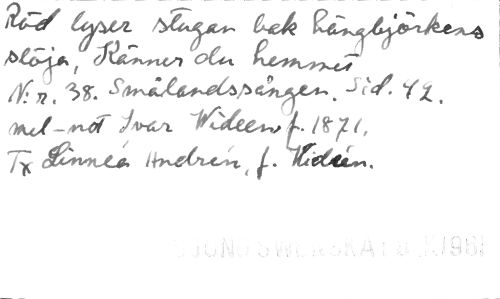 Röd lyser stugan bak hängbjörkens
slöja, Känner du hemmet
N:r. 38. Smålandssången. Sid. 42.
mel-not Ivar Wideen, f. 1871.
Tx Linnéa Andrén, f. Widéen.